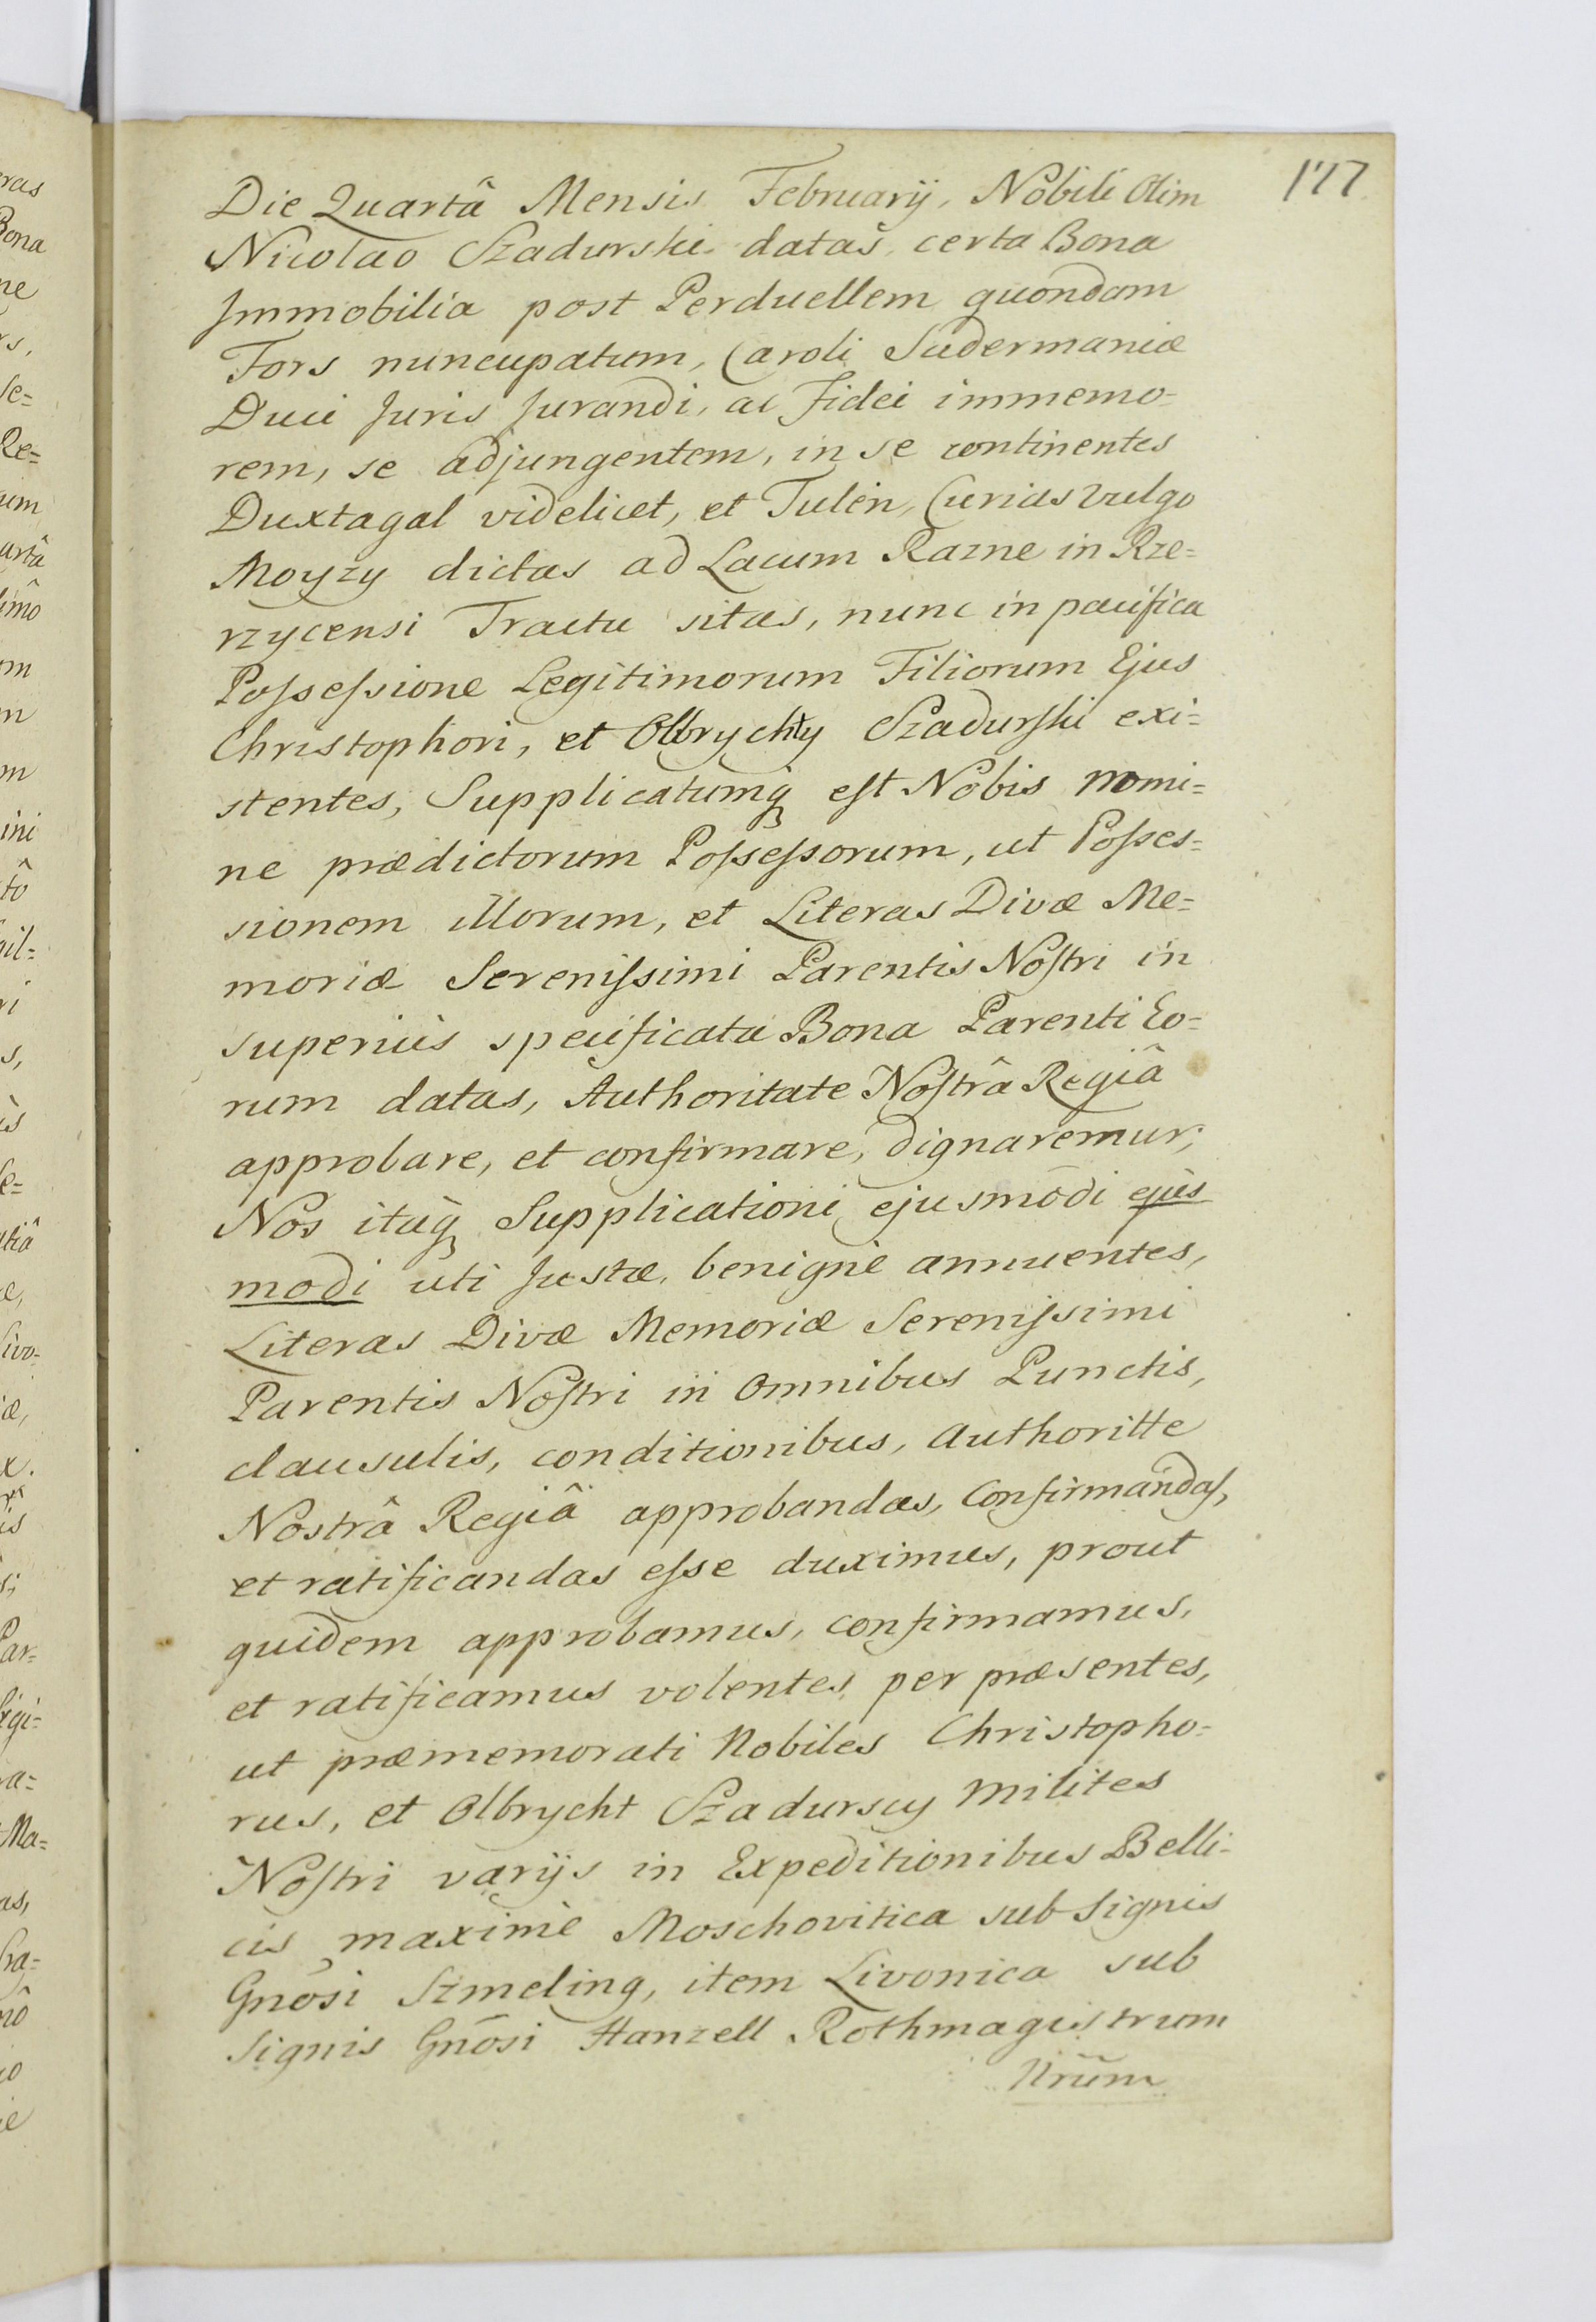 177
Die Quartâ Mensis Februarij, Nobili Olim
Nicolao Szadurski datas, certa Bona
Immobilia post Perduellem quondam
Fors nuncupatum, Caroli Sudermaniæ
Duci Juris Jurandi, ac Fidei immemo=
rem, se adjungentem, in se continentes
Duxtagal videlicet, et Tulen, Curias vulgo
Moyzy dictas ad Lacum Razne in Rze=
rzycensi Tractu sitas, nunc in pacifica
Poſseſsione Legitimorum Filiorum Ejus
Christophori, et Olbrychty Szadurſki exi=
stentes, Supplicatumq; eſt Nobis nomi=
ne prædictorum Poſseſsorum, ut Poſses=
sionem illorum, et Literas Divæ Me=
moriæ Sereniſsimi Parentis Noſtri in
superius specificata Bona Parenti Eo=
rum datas, Authoritate Noſtrâ Regiâ
approbare, et confirmare, dignaremur;
Nos itaq; Supplicationi ejusmodi ejus
modi uti Justæ, benignè annuentes,
Literas Divæ Memoriæ Sereniſsimi
Parentis Noſtri in Omnibus Punctis,
clausulis, conditionibus, Authoritte
Nostrâ Regiâ approbandas, Confirmandaſ,
et ratificandas eſse duximus, prout
quidem approbamus, confirmamus,
et ratificamus volentes per præsentes,
ut præmemorati Nobiles Christopho=
rus, et Olbrycht Szadurscy Milites
Noſtri varijs in Expeditionibus Belli=
cis maximè Moschovitica sub Signis
Gnōsi Szmeling, item Livonica sub
signis Gnōsi Hanzell Rothmagistrum
Nrūm
eras
Bona
ne
rs,
Se=
Re=
um
artâ
imô
om
m
m
ini
tô
gil=
ri
s,
ùs
Se=
ntiâ
æ,
Livo=
iæ,
x.
is
s;
Par=
ligi=
ra=
Ma=
as,
Gra=
nô
io
ie